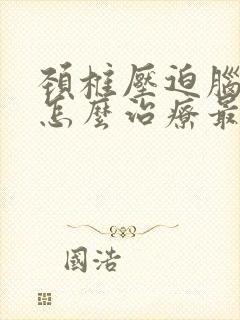 頸椎壓迫腦
怎麼治療最
國浩